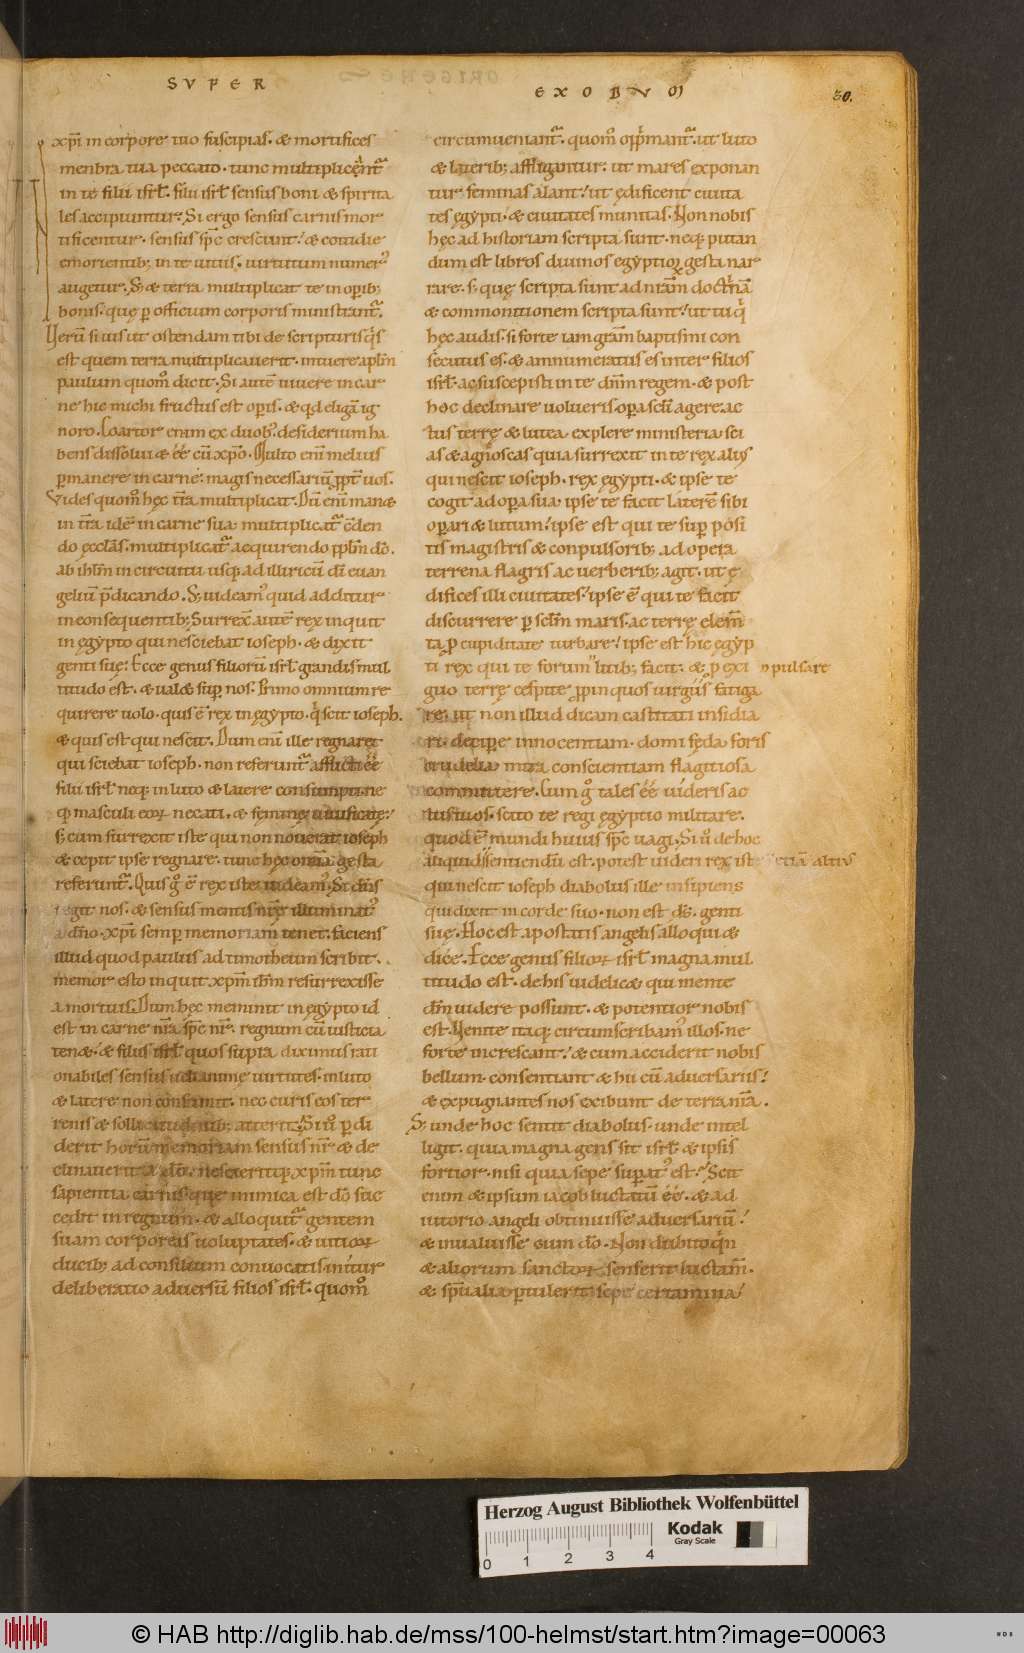 SVPER
EXODVM
30.
xpi in corpore tuo suscipias. & mortifices
menbra tua peccato. tunc multiplicent᷑
in te filii isrl. filii isrl sensus boni & spirita
les accipiuntur. Si ergo sensus carnis mor
tificentur. sensus spc crescunt. & cotidie
emorientib; in te uitiis. uirtutum numer᷒
augetur. S; & terra multiplicat te in operib;
bonis. quę p officium corporis ministrant᷑.
Verū si uis ut ostendam tibi de scripturis qͥs
est quem terra multiplicauerit. intuere aplm
paulum quomͦ dicit. Si autē uiuere in car
ne hic michi fructus est opis. & qd eligā ig
noro. Coartor enim ex duob᷒. desiderium ha
bens dissolui & ēē cū xpo. Multo enī melius
pmanere in carne. magis necessariū ppt uos.
Vides quomͦ hęc tra multiplicat. Dū enī man&
in tra idē in carne sua multiplicat᷑ creden
do ęcclās. multiplicat᷑ acquirendo pplm do.
ab ihlm in circuitu usq; ad illiricū di euan
geliū p̄dicando. S; uideam᷒ quid additur
in consequentib; Surrex autē rex inquit
in ęgypto qui nesciebat ioseph. & dixit
genti suę. Ecce genus filiorū isrl grandis mul
titudo est. & ualde sup nos. Primo omnium re
quirere uolo. quis ē rex in ęgypto. qͥ scit ioseph.
& quis est qui nescit. Dum enī ille regnaret
qui sciebat ioseph. non referunt᷑ afflicti ēē
filii isrl neq; in luto & latere consumpti. ne
q; masculi eoꝝ necati. & feminę uiuificatę.
s; cum surrexit iste qui non nouerat ioseph
& cepit ipse regnare. tunc hęc omnia gesta
referunt᷑. Quis gͦ ē rex iste uideam᷒. Si dns
regit nos. & sensus mentis nrę illuminat᷒
a dno. xpi semp memoriam tenet. faciens
illud quod paulus ad timotheum scribit.
memor esto inquit xpm ihm resurrexisse
a mortuis. Dum hęc meminit in ęgypto id
est in carne nra spc nr. regnum cū iusticia
ten&. & filios isrl quos supra diximus rati
onabiles sensus uel animę uirtutes. in luto
& latere non consumit. nec curis eos ter
renis & sollicitudinib; atterit. Si ū p di
derit horū memoriam sensus nr. & de
clinauerit a do. nescieritq; xpm tunc
sapientia carnis que inimica est do suc
cedit in regnum. & alloquit᷑ gentem
suam corporeas uoluptates. & uitioꝝ
ducib; ad consilium conuocatis initur
deliberatio aduersū filios isrl. quomͦ
circumueniant᷑. quomͦ opprimant᷑. ut luto
& laterib; affligantur. ut mares exponan
tur. feminas alant. ut ędificent ciuita
tes ęgypti. & ciuitates munitas. Non nobis
hęc ad historiam scripta sunt. neq; putan
dum est libros diuinos egyptioꝝ gesta nar
rare. s; quę scripta sunt ad nram doctrinā
& commonitionem scripta sunt. ut tu qͥ
hęc audis. si forte iam gram baptismi con
secutus es. & annumeratus es inter filios
isrl. ac suscepisti in te dnm regem. & post
hoc declinare uolueris. opa scli agere. ac
tus terrę & lutea explere ministeria sci
as & agnͦoscas quia surrexit in te rex alius
qui nescit ioseph. rex ęgypti. & ipse te
cogit ad opa sua. ipse te facit laterē sibi
opari & lutum. ipse est qui te sup posi
tis magistris & conpulsorib; ad opera
terrena flagris ac uerberib; agit. ut ę
difices illi ciuitates. ipse ē qui te facit
discurrere p sclm maris. ac terrę elem
ta p cupiditate turbare. ipse est hic ęgyp
ti rex qui te forum litib; facit. & p exi pulsare
guo terrę cespite ppinquos iurgiis fatiga
re. ut non illud dicam castitati insidia
ri. decipe innocentiam. domi fęda foris
crudelia intra conscientiam flagitiosa
committere. Cum gͦ tales ēē uideris ac
tus tuos. scito te regi ęgyptio militare.
quod ē mundi huius spc uagi. Si ū de hoc
aliquid sentiendū est. potest uideri rex iste etiā altius
qui nescit ioseph diabolus ille insipiens
qui dixit in corde suo. non est ds. genti
suę. Hoc est apostatis angelis alloqui &
dice. Ecce genus filioꝝ isrl magna mul
titudo est. de his uidelic& qui mente
dm uidere possunt. & potentior nobis
est. Venite itaq; circumscribam᷒ illos. ne
forte increscant. & cum acciderit nobis
bellum. consentiant & hii cū aduersariis.
& expugnantes nos exibunt de terra nra.
S; unde hoc sentit diabolus. unde intel
ligit. quia magna gens sit isrl. & ipsis
fortior. nisi quia sepe supat᷒ est. Scit
enim & ipsum iacob luctatū ēē. & ad
iutorio angeli obtinuisse aduersariū.
& inualuisse cum do. Non dubito qͥn
& aliorum sanctoꝝ senserit luctam.
& spualia ptulerit sepe certamina.
Herzog August Bibliothek Wolfenbüttel
Kodak
Gray Scale
0 1 2 3 4
© HAB http://diglib.hab.de/mss/100-helmst/start.htm?image=00063